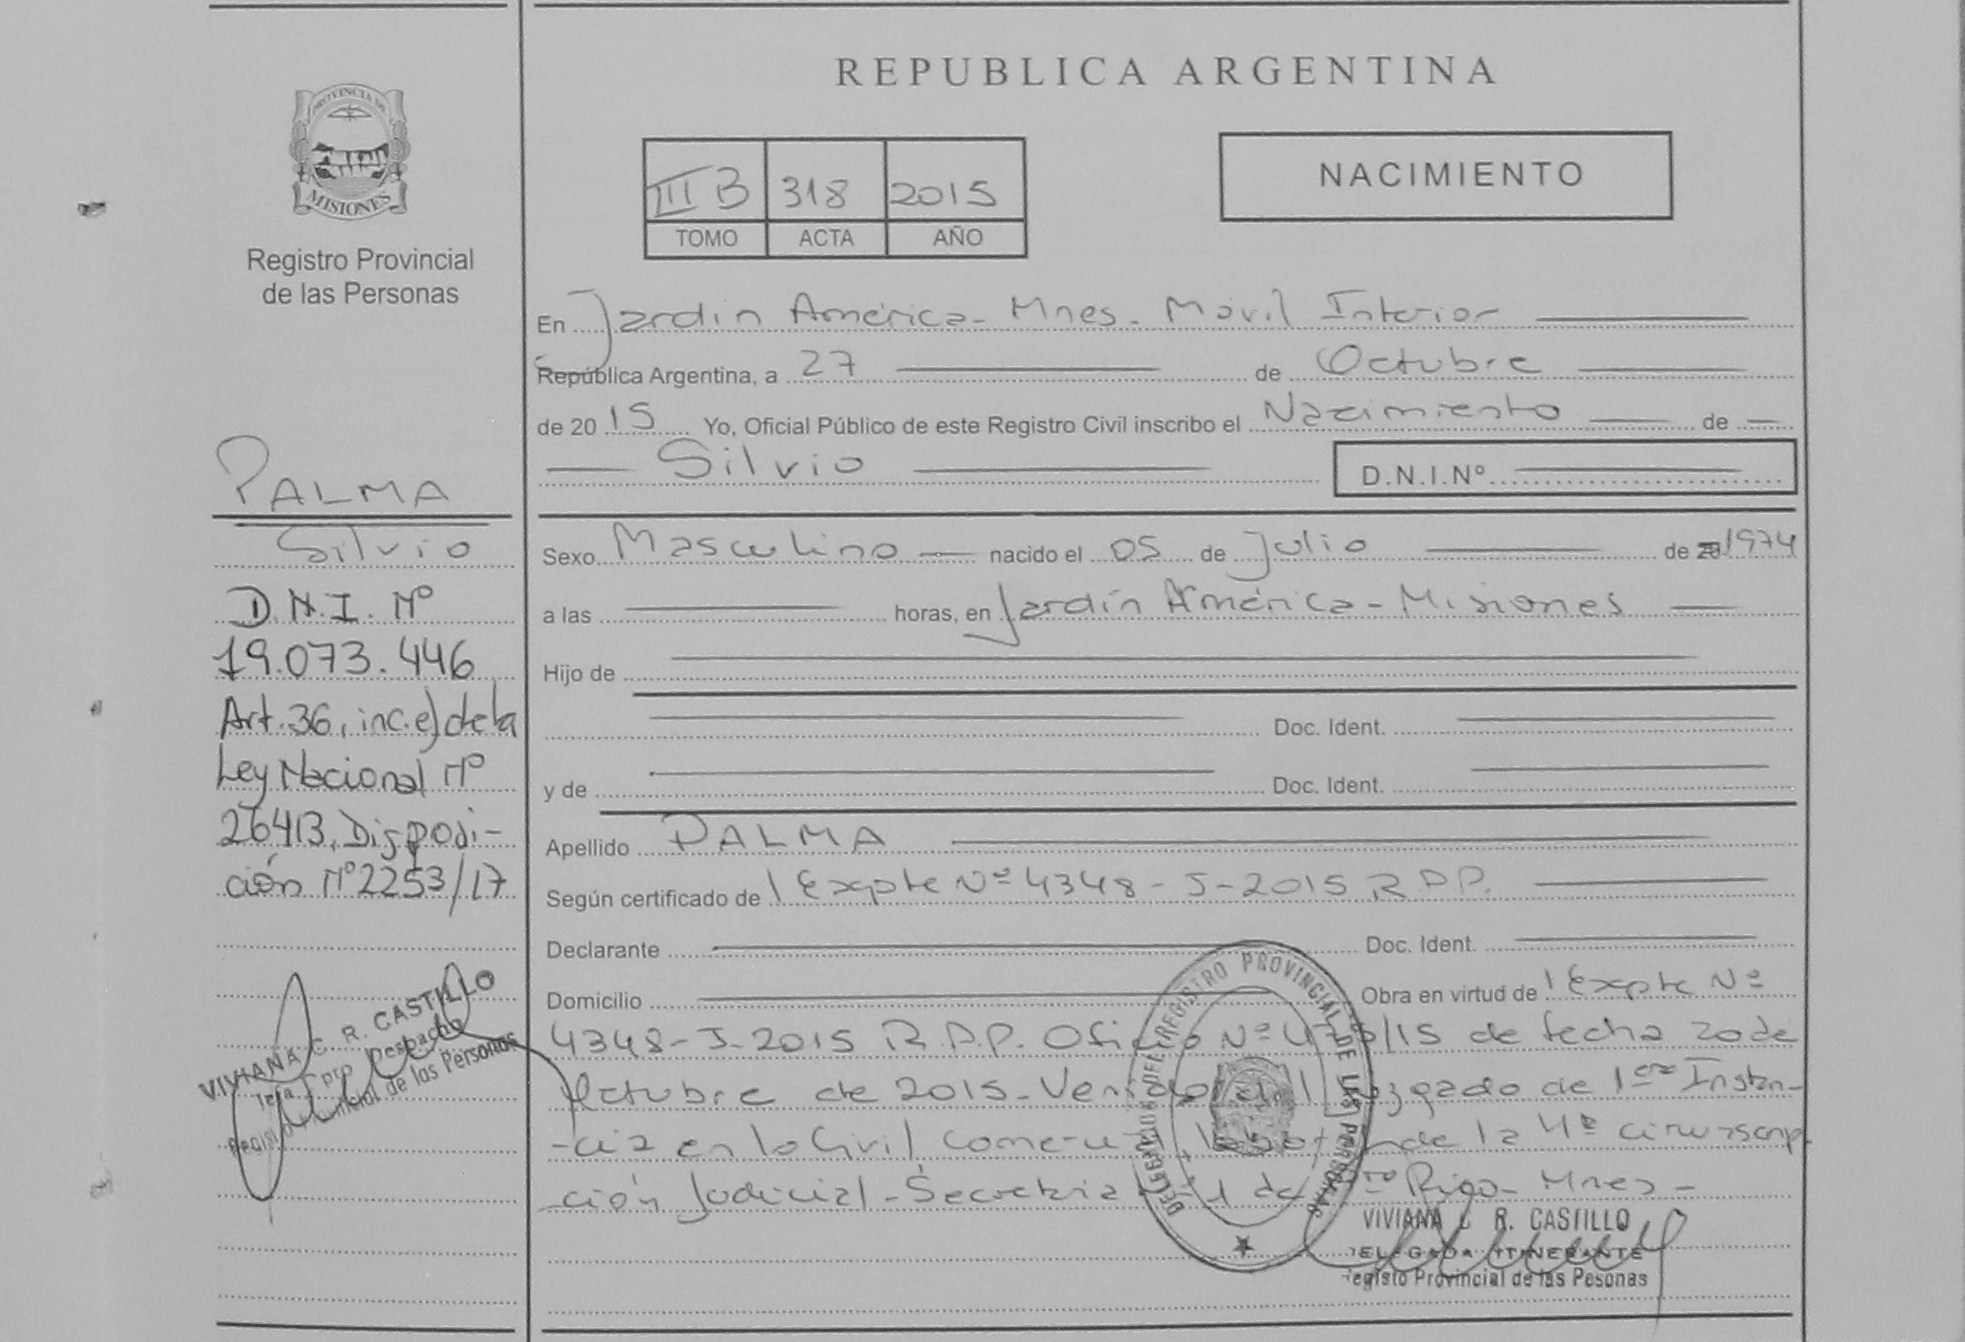 PROVINCIA DE
MISIONES
Registro Provincial
de las Personas
PALMA
Silvio
D.N.I. Nº
19.073.446
Art. 36, inc. e) de la
Ley Nacional Nº
26413, Disposi-
ción Nº 2253/17
VIVIANA C. R. CASTILLO
Despacho
Registro Provincial de las Personas
REPUBLICA ARGENTINA
III B 318 2015
TOMO ACTA AÑO
NACIMIENTO
En Jardín América - Mnes. Móvil Interior
República Argentina, a 27 de Octubre
de 2015 Yo, Oficial Público de este Registro Civil inscribo el Nacimiento de
Silvio D.N.I.Nº
Sexo Masculino nacido el 05 de Julio de 1974
a las horas, en Jardín América - Misiones
Hijo de
Doc. Ident.
y de Doc. Ident.
Apellido PALMA
Según certificado de Expte Nº 4348-J-2015 R.P.P.
Declarante Doc. Ident.
Domicilio Obra en virtud de Expte Nº
4348-J-2015 R.P.P. Oficio Nº /15 de fecha 20 de
Octubre de 2015 - Juzgado de 1era Instan-
-cia en lo Civil de la 4ª circunscrip
ción Judicial - Secretaria 1 de Pto Rico - Mnes -
DELEGACION DEL REGISTRO PROVINCIAL DE LAS PERSONAS
VIVIANA C R. CASTILLO
DELEGADA ITINERANTE
Registo Provincial de las Pesonas